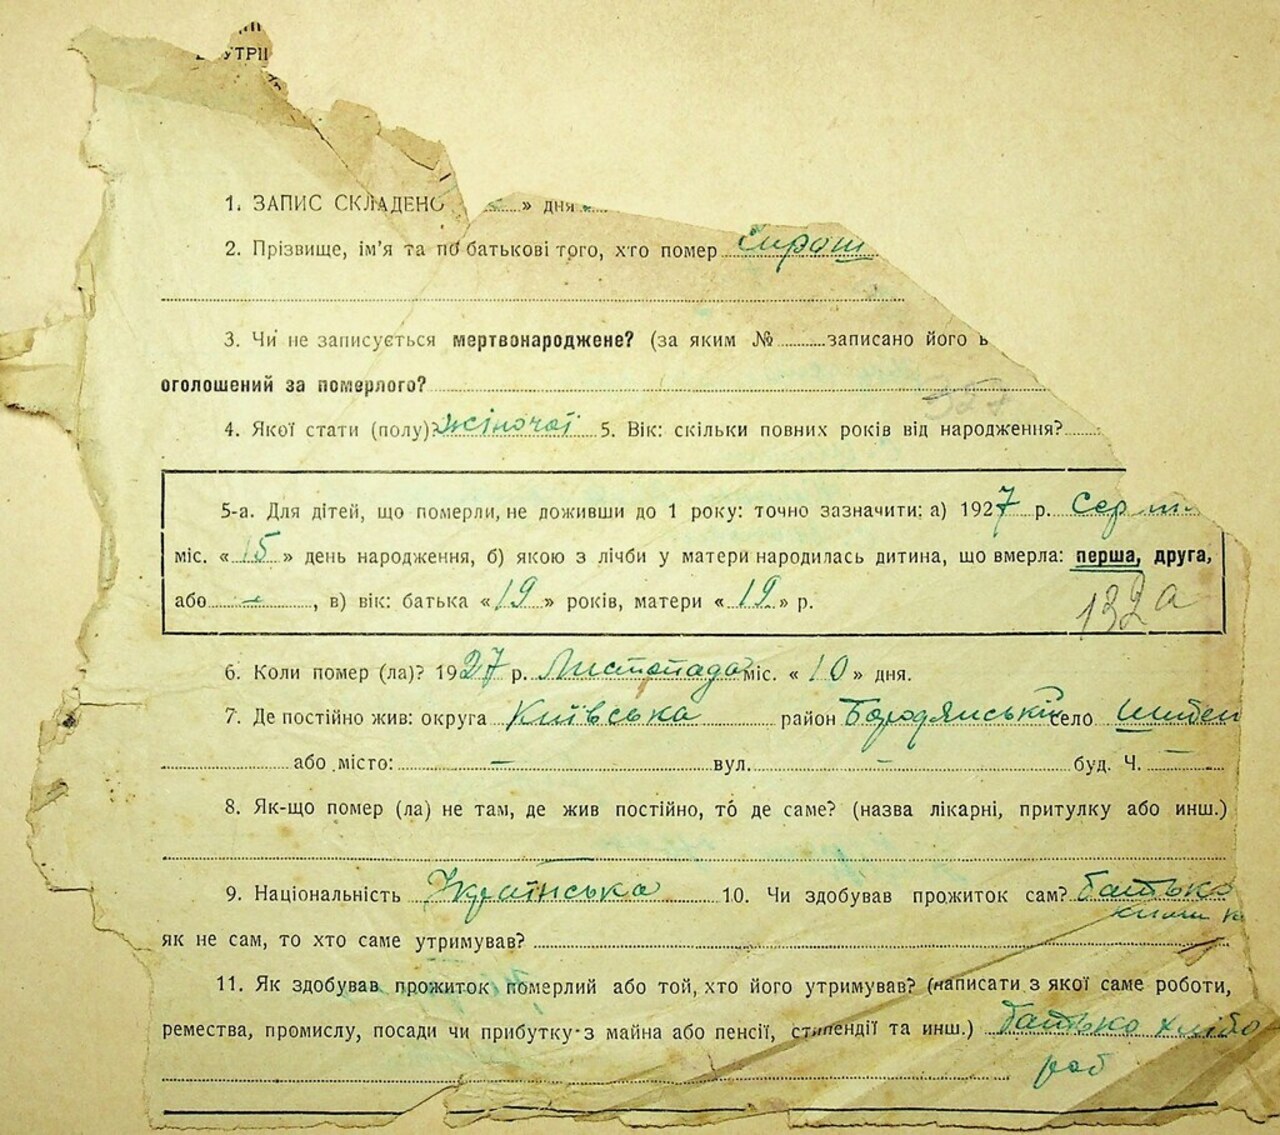 УТРІ
1. ЗАПИС СКЛАДЕНО » дня
2. Прізвище, ім'я та по батькові того, хто помер Сирош
3. Чи не записується мертвонароджене? (за яким № записано його
оголошений за померлого?
4. Якої стати (полу)? жіночої 5. Вік: скільки повних років від народження?
5-а. Для дітей, що померли, не доживши до 1 року: точно зазначити: а) 1927 р.
міс. « 15 » день народження, б) якою з лічби у матери народилась дитина, що вмерла: перша, друга,
або — , в) вік: батька « 19 » років, матери « 19 » р.
132а
6. Коли помер (ла)? 1927 р. Листопада міс. « 10 » дня.
7. Де постійно жив: округа Київська район Бородянській село Шибен
або місто: — вул. — буд. Ч. —
8. Як-що помер (ла) не там, де жив постійно, то де саме? (назва лікарні, притулку або инш.)
9. Національність Українська 10. Чи здобував прожиток сам? батько
як не сам, то хто саме утримував?
11. Як здобував прожиток померлий або той, хто його утримував? (написати з якої саме роботи,
ремества, промислу, посади чи прибутку з майна або пенсії, стипендії та инш.) батько хлібо
роб